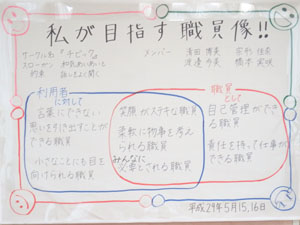 私が目指す職員像!!
サークル名 『ホビック』
スローガン 和気あいあいと
約束 話をよく聞く
メンバー
利用者に対して
言葉にできない
思いを引き出すことが
できる職員
小さなことにも目を
向けられる職員
笑顔がステキな職員
柔軟に物事を考え
られる職員
みんなに
必要とされる職員
職員として
自己管理ができ
る職員
責任を持って仕事が
できる職員
平成29年5月15,16日